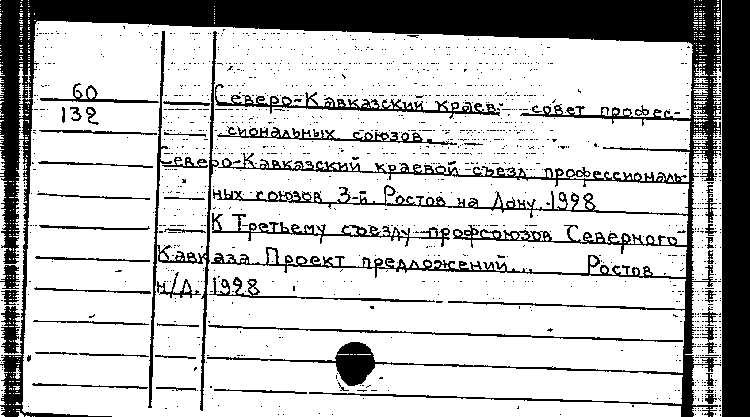 60
132
Северо-Кавказский краев. совет профес-
сиональных союзов.
Северо-Кавказский краевой съезд профессиональ-
ных союзов, 3-й. Ростов на Дону, 1928
К Третьему съезду профсоюзов Северного
Кавказа. Проект предложений... Ростов
н/Д., 1928